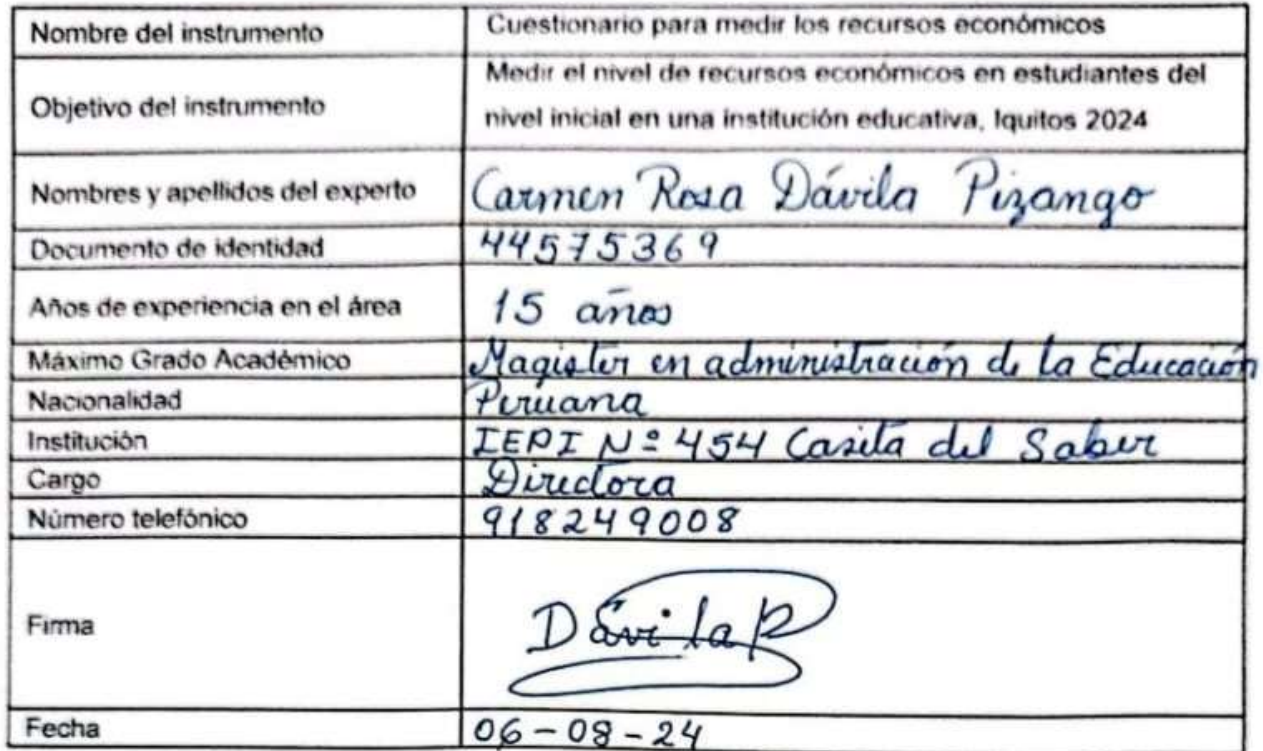 Nombre del instrumento
Cuestionario para medir los recursos económicos
Objetivo del instrumento
Medir el nivel de recursos económicos en estudiantes del
nivel inicial en una institución educativa, Iquitos 2024
Nombres y apellidos del experto
Carmen Rosa Dávila Pizango
Documento de identidad
44575369
Años de experiencia en el área
15 años
Máximo Grado Académico
Magister en administración de la Educación
Nacionalidad
Peruana
Institución
IEPI Nº 454 Casita del Saber
Cargo
Directora
Número telefónico
918249008
Firma
Dávila P
Fecha
06-08-24